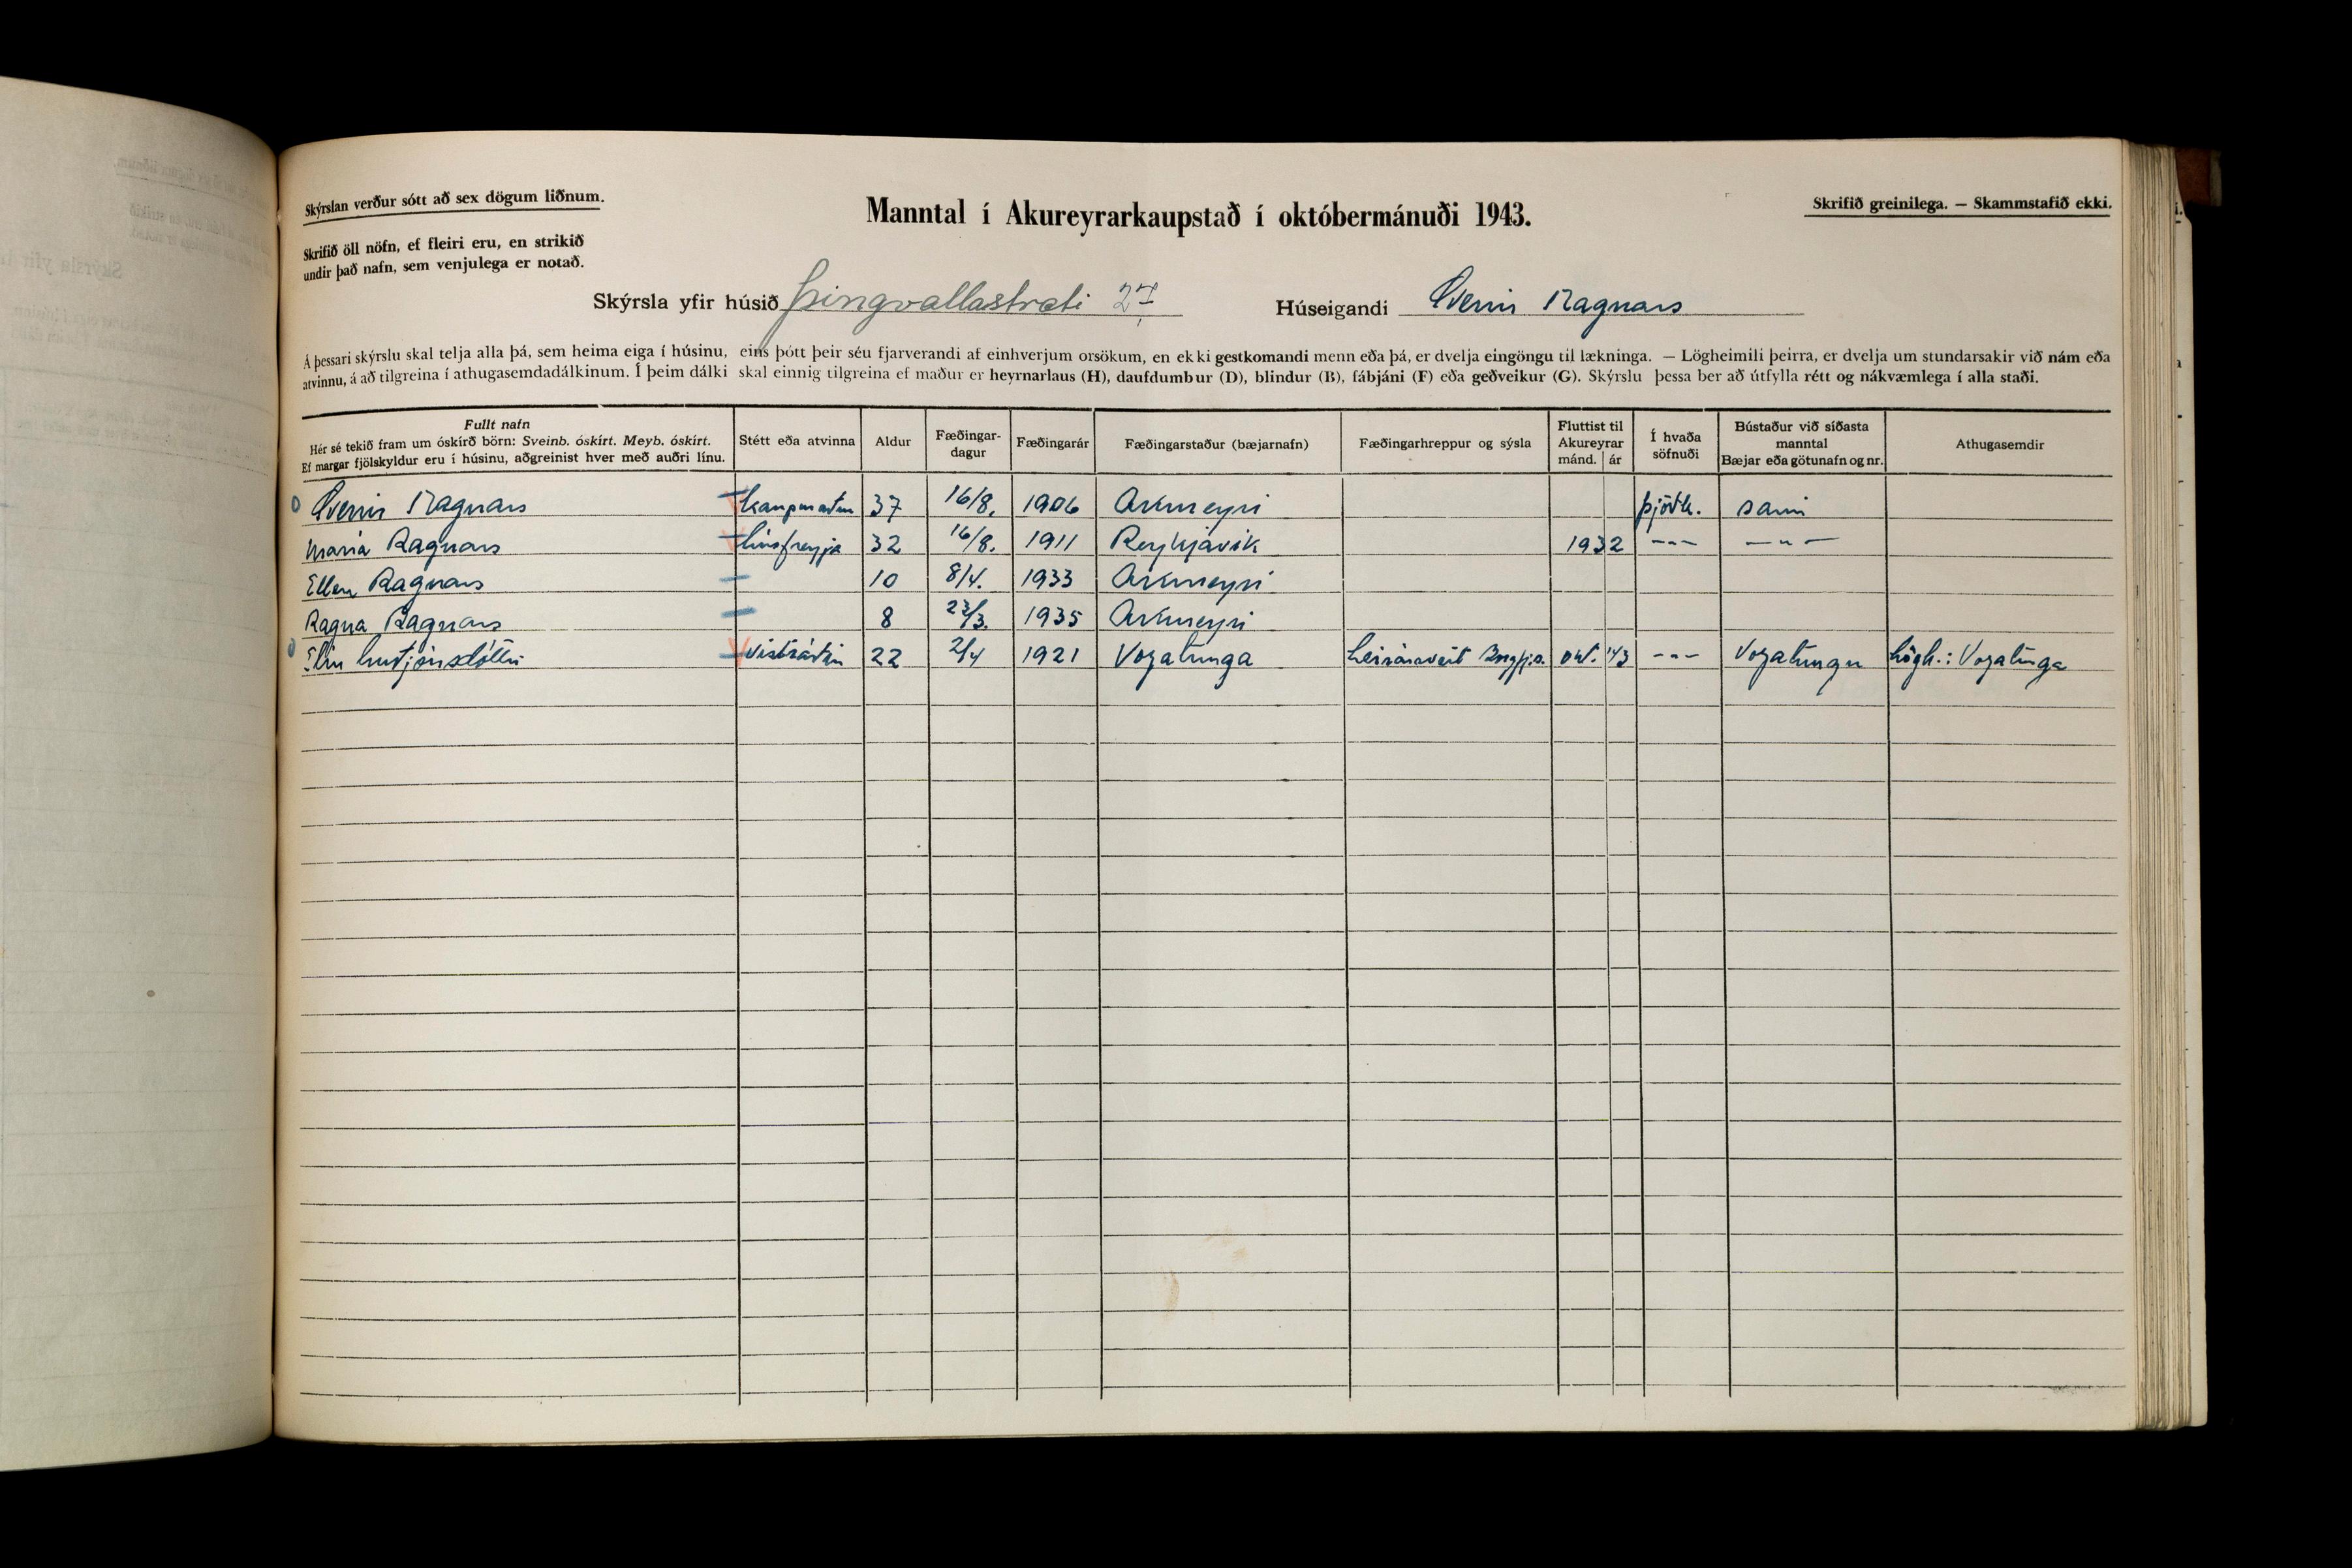 Skýrslan verður sótt að sex dögum liðnum.
Manntal í Akureyrarkaupstað í októbermánuði 1943.
Skrifið greinilega. — Skammstafið ekki.
Skrifið öll nöfn, ef fleiri eru, en strikið
undir það nafn, sem venjulega er notað.
Skýrsla yfir húsið Þingvallastræti 27 Húseigandi Sverrir Ragnars
Á þessari skýrslu skal telja alla þá, sem heima eiga í húsinu, eins þótt þeir séu fjarverandi af einhverjum orsökum, en ekki gestkomandi menn eða þá, er dvelja eingöngu til lækninga. — Lögheimili þeirra, er dvelja um stundarsakir við nám eða
atvinnu, á að tilgreina í athugasemdadálkinum. Í þeim dálki skal einnig tilgreina ef maður er heyrnarlaus (H), daufdumbur (D), blindur (B), fábjáni (F) eða geðveikur (G). Skýrslu þessa ber að útfylla rétt og nákvæmlega í alla staði.
Fullt nafn
Hér sé tekið fram um óskírð börn: Sveinb. óskírt. Meyb. óskírt.
Ef margar fjölskyldur eru í húsinu, aðgreinist hver með auðri línu.
Stétt eða atvinna
Aldur
Fæðingar-
dagur
Fæðingarár
Fæðingarstaður (bæjarnafn)
Fæðingarhreppur og sýsla
Fluttist til
Akureyrar
mánd. ár
Í hvaða
söfnuði
Bústaður við síðasta
manntal
Bæjar eða götunafn og nr.
Athugasemdir
Sverrir Ragnars kaupmaður 37 16/8. 1906 Akureyri þjóðk. sami
María Ragnars húsfreyja 32 16/8. 1911 Reykjavík 1932 --- —„—
Ellen Ragnars 10 8/4. 1933 Akureyri
Ragna Ragnars 8 23/3. 1935 Akureyri
Elín vistráðin 22 2/4 1921 Vogatunga Leirársveit Borgfj.s. okt. '43 --- Vogatungu Lögh.: Vogatunga